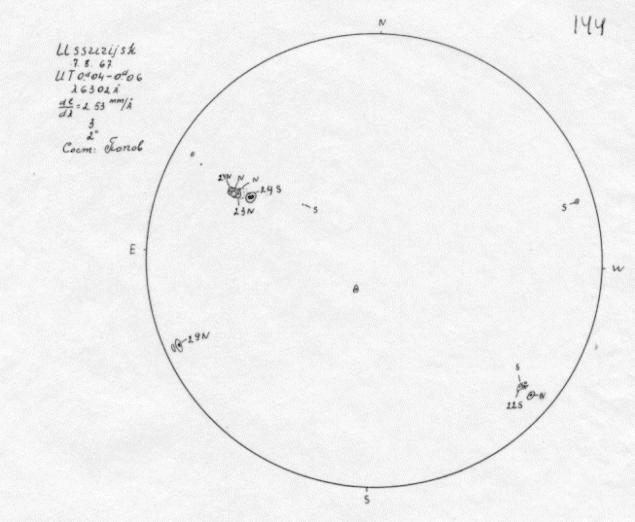 144
N
Ussurijsk
7.8.67
UT 0.d04-0.d06
λ6302Å
dl/dλ=2.53 mm/Å
3
2"
Сост: Попов
N
N
24S
23N
S
S
E
W
29N
S
22S
N
S